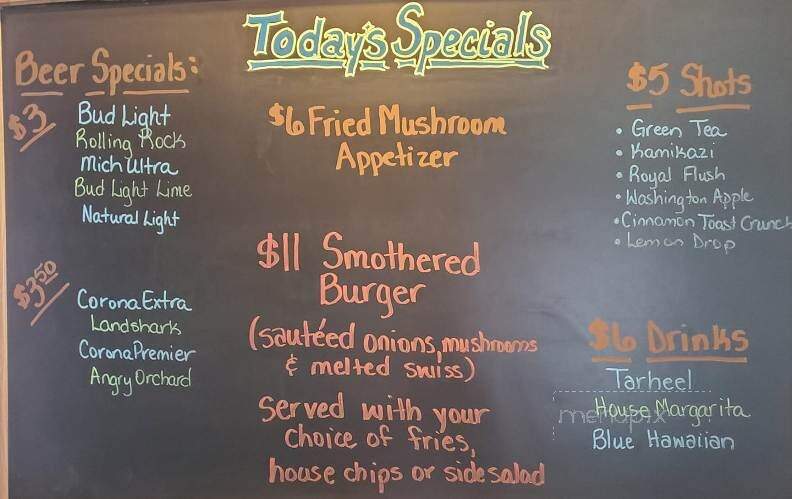 Today's Specials
Beer Specials:
$3
Bud Light
Rolling Rock
Mich Ultra
Bud Light Lime
Natural Light
$3.50
Corona Extra
Landshark
Corona Premier
Angry Orchard
$6 Fried Mushroom
Appetizer
$11 Smothered
Burger
(sautéed onions, mushrooms
& melted swiss)
Served with your
choice of fries,
house chips or side salad
$5 Shots
• Green Tea
• Kamikazi
• Royal Flush
• Washington Apple
• Cinnamon Toast Crunch
• Lemon Drop
$6 Drinks
Tarheel
House Margarita
Blue Hawaiian
menupix